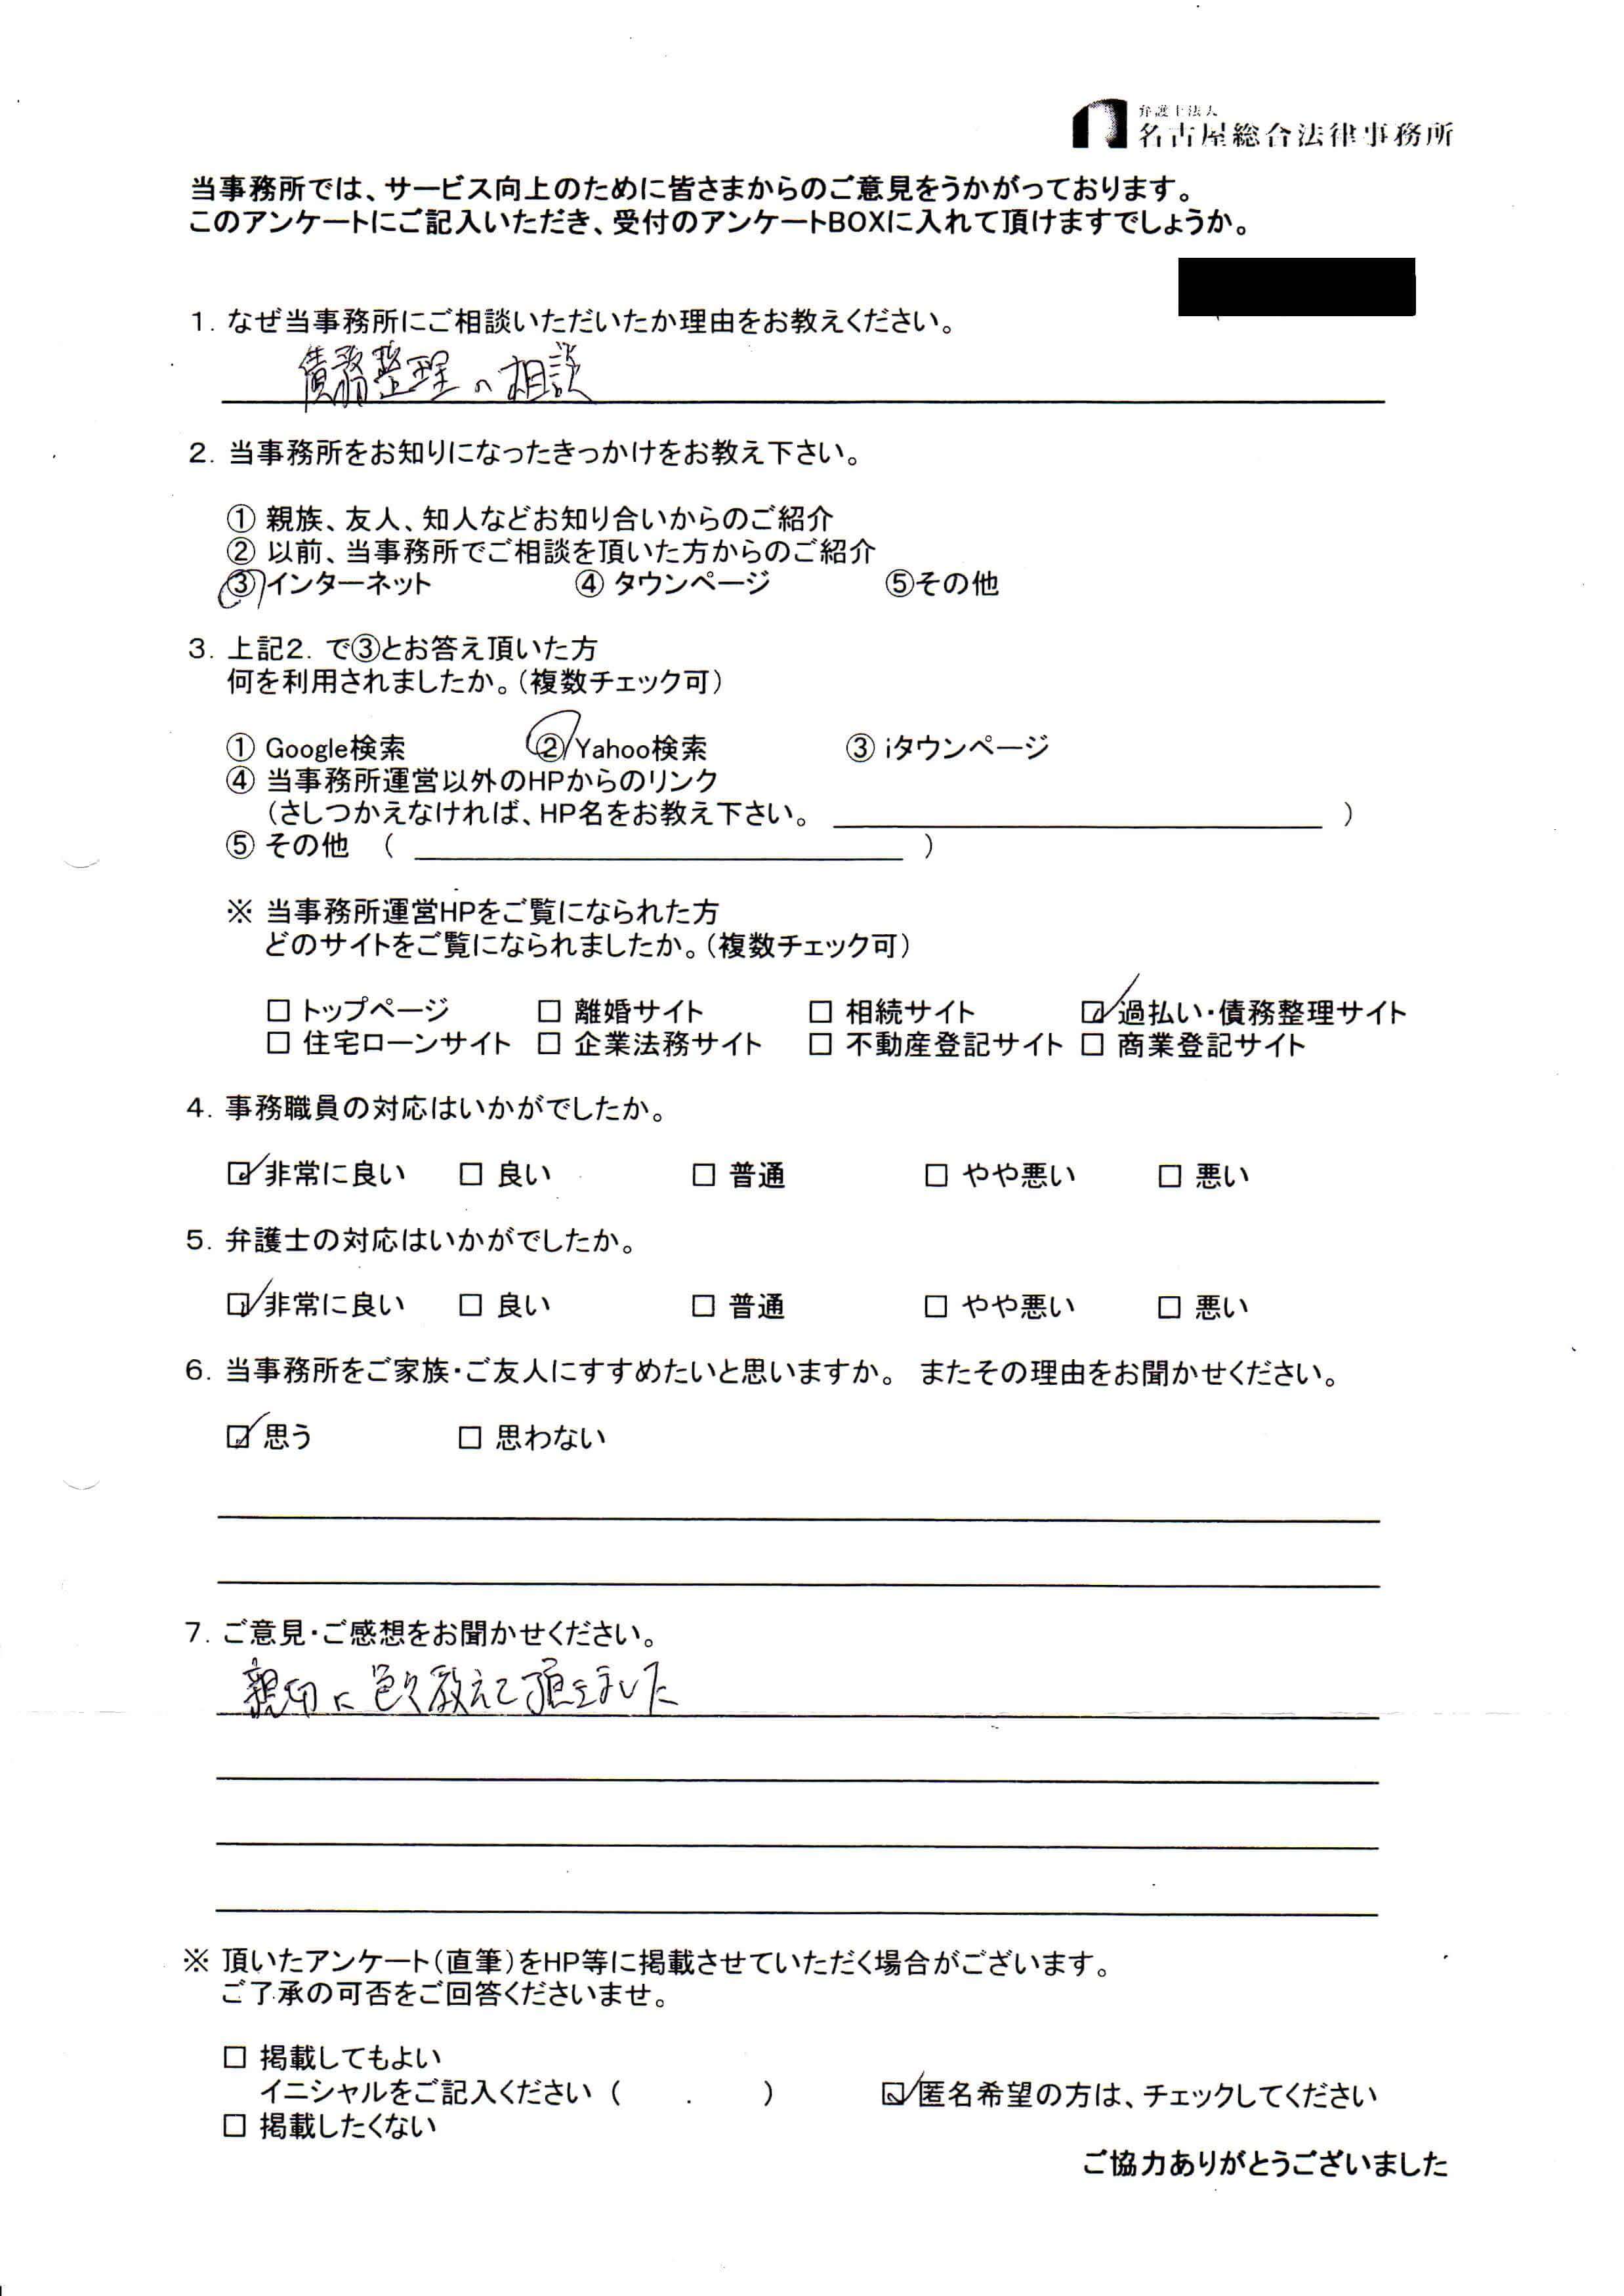 弁護士法人
名古屋総合法律事務所
当事務所では、サービス向上のために皆さまからのご意見をうかがっております。
このアンケートにご記入いただき、受付のアンケートBOXに入れて頂けますでしょうか。
1. なぜ当事務所にご相談いただいたか理由をお教えください。
債務整理の相談
2. 当事務所をお知りになったきっかけをお教え下さい。
① 親族、友人、知人などお知り合いからのご紹介
② 以前、当事務所でご相談を頂いた方からのご紹介
③ インターネット ④ タウンページ ⑤その他
3. 上記2. で③とお答え頂いた方
何を利用されましたか。(複数チェック可)
① Google検索 ② Yahoo検索 ③ iタウンページ
④ 当事務所運営以外のHPからのリンク
(さしつかえなければ、HP名をお教え下さい。 )
⑤ その他 ( )
※ 当事務所運営HPをご覧になられた方
どのサイトをご覧になられましたか。(複数チェック可)
□ トップページ □ 離婚サイト □ 相続サイト ☑ 過払い・債務整理サイト
□ 住宅ローンサイト □ 企業法務サイト □ 不動産登記サイト □ 商業登記サイト
4. 事務職員の対応はいかがでしたか。
☑ 非常に良い □ 良い □ 普通 □ やや悪い □ 悪い
5. 弁護士の対応はいかがでしたか。
☑ 非常に良い □ 良い □ 普通 □ やや悪い □ 悪い
6. 当事務所をご家族・ご友人にすすめたいと思いますか。 またその理由をお聞かせください。
☑ 思う □ 思わない
7. ご意見・ご感想をお聞かせください。
親切に色々教えて頂きました
※ 頂いたアンケート(直筆)をHP等に掲載させていただく場合がございます。
ご了承の可否をご回答くださいませ。
□ 掲載してもよい
イニシャルをご記入ください ( . ) ☑ 匿名希望の方は、チェックしてください
□ 掲載したくない
ご協力ありがとうございました